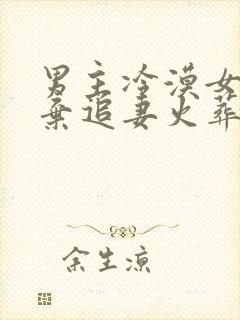 男主冷漠女
弃追妻火葬
余生凉